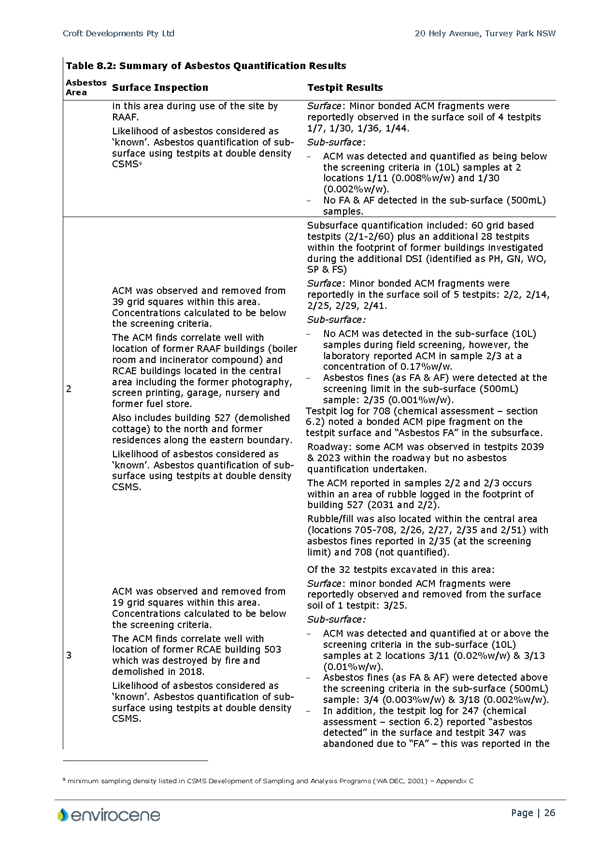 Croft Developments Pty Ltd
20 Hely Avenue, Turvey Park NSW
Table 8.2: Summary of Asbestos Quantification Results
Asbestos
Area
Surface Inspection
Testpit Results
in this area during use of the site by
RAAF.
Likelihood of asbestos considered as
‘known’. Asbestos quantification of sub-
surface using testpits at double density
CSMS⁹
Surface: Minor bonded ACM fragments were
reportedly observed in the surface soil of 4 testpits
1/7, 1/30, 1/36, 1/44.
Sub-surface:
– ACM was detected and quantified as being below
the screening criteria in (10L) samples at 2
locations 1/11 (0.008%w/w) and 1/30
(0.002%w/w).
– No FA & AF detected in the sub-surface (500mL)
samples.
2
ACM was observed and removed from
39 grid squares within this area.
Concentrations calculated to be below
the screening criteria.
The ACM finds correlate well with
location of former RAAF buildings (boiler
room and incinerator compound) and
RCAE buildings located in the central
area including the former photography,
screen printing, garage, nursery and
former fuel store.
Also includes building 527 (demolished
cottage) to the north and former
residences along the eastern boundary.
Likelihood of asbestos considered as
‘known’. Asbestos quantification of sub-
surface using testpits at double density
CSMS.
Subsurface quantification included: 60 grid based
testpits (2/1-2/60) plus an additional 28 testpits
within the footprint of former buildings investigated
during the additional DSI (identified as PH, GN, WO,
SP & FS)
Surface: Minor bonded ACM fragments were
reportedly in the surface soil of 5 testpits: 2/2, 2/14,
2/25, 2/29, 2/41.
Sub-surface:
– No ACM was detected in the sub-surface (10L)
samples during field screening, however, the
laboratory reported ACM in sample 2/3 at a
concentration of 0.17%w/w.
– Asbestos fines (as FA & AF) were detected at the
screening limit in the sub-surface (500mL)
sample: 2/35 (0.001%w/w).
Testpit log for 708 (chemical assessment – section
6.2) noted a bonded ACM pipe fragment on the
testpit surface and “Asbestos FA” in the subsurface.
Roadway: some ACM was observed in testpits 2039
& 2023 within the roadway but no asbestos
quantification undertaken.
The ACM reported in samples 2/2 and 2/3 occurs
within an area of rubble logged in the footprint of
building 527 (2031 and 2/2).
Rubble/fill was also located within the central area
(locations 705-708, 2/26, 2/27, 2/35 and 2/51) with
asbestos fines reported in 2/35 (at the screening
limit) and 708 (not quantified).
3
ACM was observed and removed from
19 grid squares within this area.
Concentrations calculated to be below
the screening criteria.
The ACM finds correlate well with
location of former RCAE building 503
which was destroyed by fire and
demolished in 2018.
Likelihood of asbestos considered as
‘known’. Asbestos quantification of sub-
surface using testpits at double density
CSMS.
Of the 32 testpits excavated in this area:
Surface: minor bonded ACM fragments were
reportedly observed and removed from the surface
soil of 1 testpit: 3/25.
Sub-surface:
– ACM was detected and quantified at or above the
screening criteria in the sub-surface (10L)
samples at 2 locations 3/11 (0.02%w/w) & 3/13
(0.01%w/w).
– Asbestos fines (as FA & AF) were detected above
the screening criteria in the sub-surface (500mL)
sample: 3/4 (0.003%w/w) & 3/18 (0.002%w/w).
– In addition, the testpit log for 247 (chemical
assessment – section 6.2) reported “asbestos
detected” in the surface and testpit 347 was
abandoned due to “FA” – this was reported in the
⁹ minimum sampling density listed in CSMS Development of Sampling and Analysis Programs (WA DEC, 2001) – Appendix C
envirocene
Page | 26